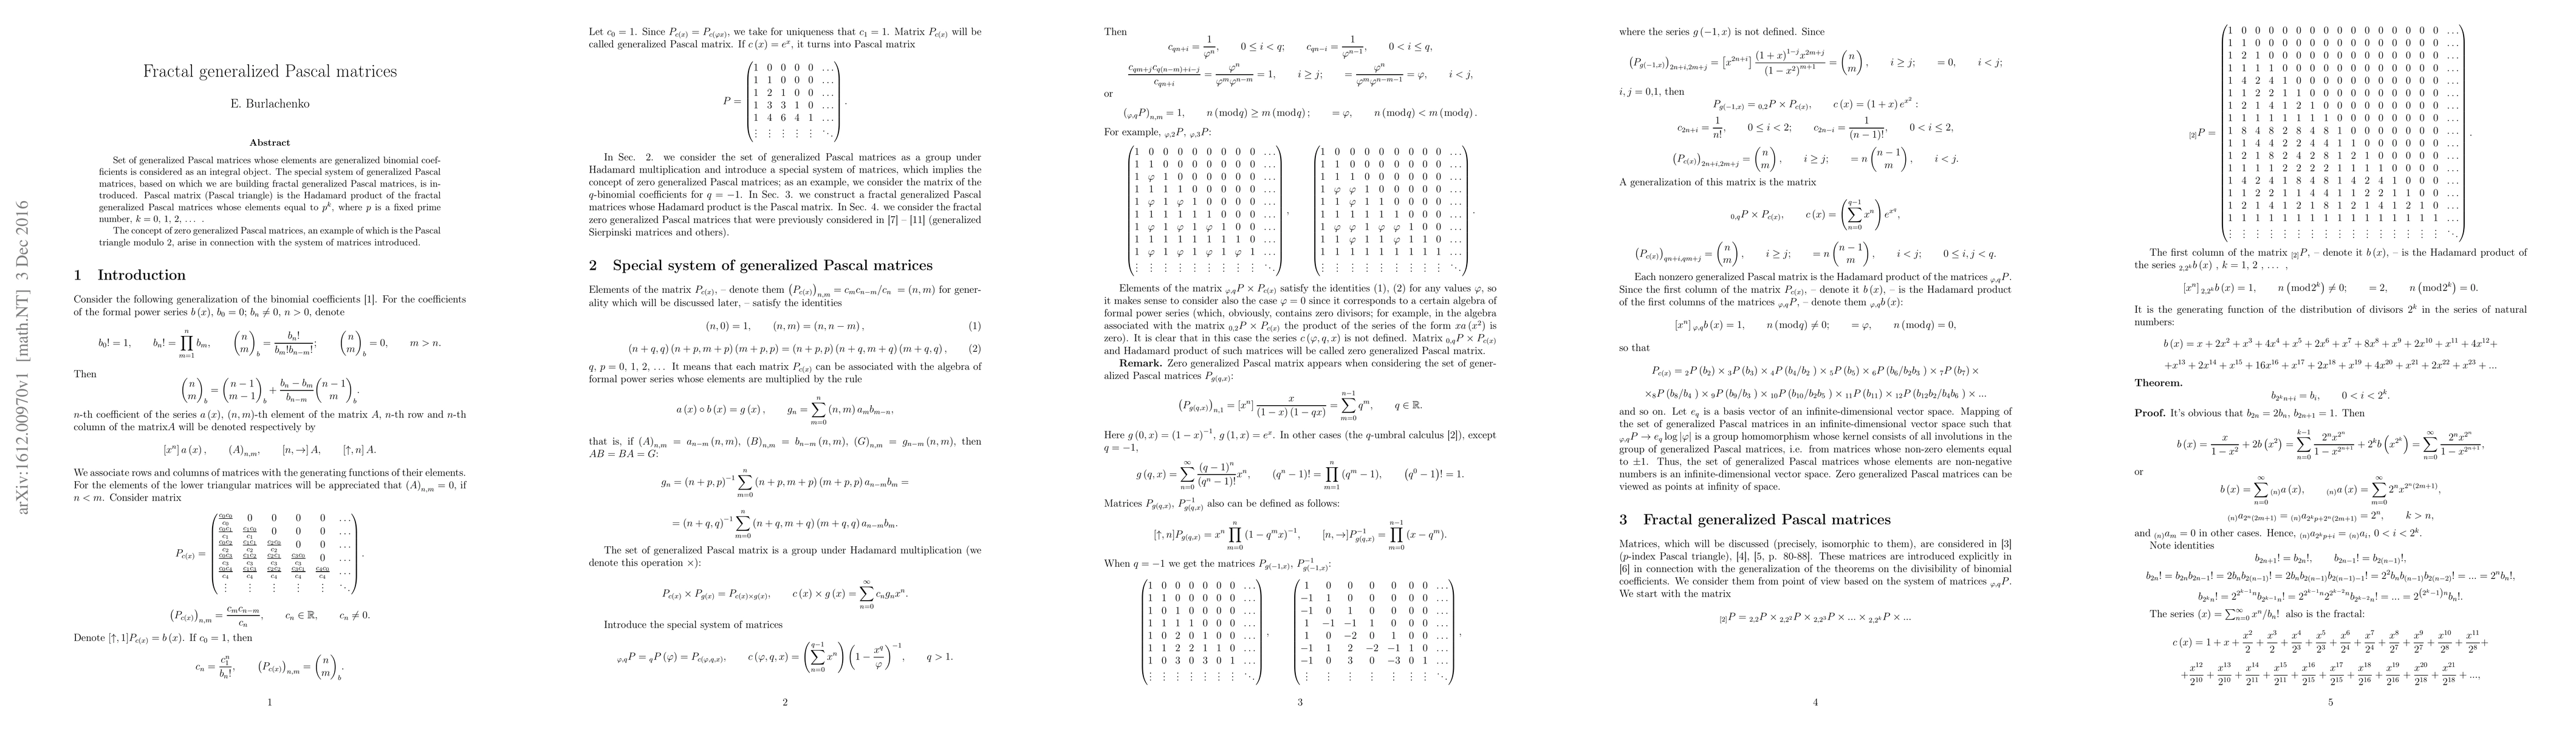 arXiv:1612.00970v1 [math.NT] 3 Dec 2016
Fractal generalized Pascal matrices
E. Burlachenko
Abstract
Set of generalized Pascal matrices whose elements are generalized binomial coef-
ficients is considered as an integral object. The special system of generalized Pascal
matrices, based on which we are building fractal generalized Pascal matrices, is in-
troduced. Pascal matrix (Pascal triangle) is the Hadamard product of the fractal
generalized Pascal matrices whose elements equal to p^k, where p is a fixed prime
number, k = 0, 1, 2, … .
The concept of zero generalized Pascal matrices, an example of which is the Pascal
triangle modulo 2, arise in connection with the system of matrices introduced.
1 Introduction
Consider the following generalization of the binomial coefficients [1]. For the coefficients
of the formal power series b (x), b_0 = 0; b_n ≠ 0, n > 0, denote
b_0! = 1, b_n! = ∏_{m=1}^{n} b_m, (n m)_b = b_n!/(b_m! b_{n−m}!); (n m)_b = 0, m > n.
Then
(n m)_b = (n−1 m−1)_b + (b_n − b_m)/b_{n−m} (n−1 m)_b.
n-th coefficient of the series a (x), (n, m)-th element of the matrix A, n-th row and n-th
column of the matrixA will be denoted respectively by
[x^n] a (x), (A)_{n,m}, [n, →] A, [↑, n] A.
We associate rows and columns of matrices with the generating functions of their elements.
For the elements of the lower triangular matrices will be appreciated that (A)_{n,m} = 0, if
n < m. Consider matrix
P_{c(x)} = ( c_0c_0/c_0 0 0 0 0 …
c_0c_1/c_1 c_1c_0/c_1 0 0 0 …
c_0c_2/c_2 c_1c_1/c_2 c_2c_0/c_2 0 0 …
c_0c_3/c_3 c_1c_2/c_3 c_2c_1/c_3 c_3c_0/c_3 0 …
c_0c_4/c_4 c_1c_3/c_4 c_2c_2/c_4 c_3c_1/c_4 c_4c_0/c_4 …
⋮ ⋮ ⋮ ⋮ ⋮ ⋱ ) .
(P_{c(x)})_{n,m} = c_m c_{n−m}/c_n, c_n ∈ ℝ, c_n ≠ 0.
Denote [↑, 1]P_{c(x)} = b (x). If c_0 = 1, then
c_n = c_1^n/b_n!, (P_{c(x)})_{n,m} = (n m)_b.
1
Let c_0 = 1. Since P_{c(x)} = P_{c(φx)}, we take for uniqueness that c_1 = 1. Matrix P_{c(x)} will be
called generalized Pascal matrix. If c (x) = e^x, it turns into Pascal matrix
P = ( 1 0 0 0 0 …
1 1 0 0 0 …
1 2 1 0 0 …
1 3 3 1 0 …
1 4 6 4 1 …
⋮ ⋮ ⋮ ⋮ ⋮ ⋱ ) .
In Sec. 2. we consider the set of generalized Pascal matrices as a group under
Hadamard multiplication and introduce a special system of matrices, which implies the
concept of zero generalized Pascal matrices; as an example, we consider the matrix of the
q-binomial coefficients for q = −1. In Sec. 3. we construct a fractal generalized Pascal
matrices whose Hadamard product is the Pascal matrix. In Sec. 4. we consider the fractal
zero generalized Pascal matrices that were previously considered in [7] – [11] (generalized
Sierpinski matrices and others).
2 Special system of generalized Pascal matrices
Elements of the matrix P_{c(x)}, – denote them (P_{c(x)})_{n,m} = c_m c_{n−m}/c_n = (n, m) for gener-
ality which will be discussed later, – satisfy the identities
(n, 0) = 1, (n, m) = (n, n − m), (1)
(n + q, q) (n + p, m + p) (m + p, p) = (n + p, p) (n + q, m + q) (m + q, q), (2)
q, p = 0, 1, 2, … It means that each matrix P_{c(x)} can be associated with the algebra of
formal power series whose elements are multiplied by the rule
a (x) ∘ b (x) = g (x), g_n = ∑_{m=0}^{n} (n, m) a_m b_{m−n},
that is, if (A)_{n,m} = a_{n−m} (n, m), (B)_{n,m} = b_{n−m} (n, m), (G)_{n,m} = g_{n−m} (n, m), then
AB = BA = G:
g_n = (n + p, p)^{−1} ∑_{m=0}^{n} (n + p, m + p) (m + p, p) a_{n−m} b_m =
= (n + q, q)^{−1} ∑_{m=0}^{n} (n + q, m + q) (m + q, q) a_{n−m} b_m.
The set of generalized Pascal matrix is a group under Hadamard multiplication (we
denote this operation ×):
P_{c(x)} × P_{g(x)} = P_{c(x)×g(x)}, c (x) × g (x) = ∑_{n=0}^{∞} c_n g_n x^n.
Introduce the special system of matrices
_{φ,q}P = _qP (φ) = P_{c(φ,q,x)}, c (φ, q, x) = (∑_{n=0}^{q−1} x^n) (1 − x^q/φ)^{−1}, q > 1.
2
Then
c_{qn+i} = 1/φ^n, 0 ≤ i < q; c_{qn−i} = 1/φ^{n−1}, 0 < i ≤ q,
c_{qm+j}c_{q(n−m)+i−j}/c_{qn+i} = φ^n/(φ^m φ^{n−m}) = 1, i ≥ j; = φ^n/(φ^m φ^{n−m−1}) = φ, i < j,
or
(_{φ,q}P)_{n,m} = 1, n (modq) ≥ m (modq); = φ, n (modq) < m (modq).
For example, _{φ,2}P, _{φ,3}P:
( 1 0 0 0 0 0 0 0 0 …
1 1 0 0 0 0 0 0 0 …
1 φ 1 0 0 0 0 0 0 …
1 1 1 1 0 0 0 0 0 …
1 φ 1 φ 1 0 0 0 0 …
1 1 1 1 1 1 0 0 0 …
1 φ 1 φ 1 φ 1 0 0 …
1 1 1 1 1 1 1 1 0 …
1 φ 1 φ 1 φ 1 φ 1 …
⋮ ⋮ ⋮ ⋮ ⋮ ⋮ ⋮ ⋮ ⋮ ⋱ ) ,
( 1 0 0 0 0 0 0 0 0 …
1 1 0 0 0 0 0 0 0 …
1 1 1 0 0 0 0 0 0 …
1 φ φ 1 0 0 0 0 0 …
1 1 φ 1 1 0 0 0 0 …
1 1 1 1 1 1 0 0 0 …
1 φ φ 1 φ φ 1 0 0 …
1 1 φ 1 1 φ 1 1 0 …
1 1 1 1 1 1 1 1 1 …
⋮ ⋮ ⋮ ⋮ ⋮ ⋮ ⋮ ⋮ ⋮ ⋱ ) .
Elements of the matrix _{φ,q}P × P_{c(x)} satisfy the identities (1), (2) for any values φ, so
it makes sense to consider also the case φ = 0 since it corresponds to a certain algebra of
formal power series (which, obviously, contains zero divisors; for example, in the algebra
associated with the matrix _{0,2}P × P_{c(x)} the product of the series of the form xa (x^2) is
zero). It is clear that in this case the series c (φ, q, x) is not defined. Matrix _{0,q}P × P_{c(x)}
and Hadamard product of such matrices will be called zero generalized Pascal matrix.
Remark. Zero generalized Pascal matrix appears when considering the set of gener-
alized Pascal matrices P_{g(q,x)}:
(P_{g(q,x)})_{n,1} = [x^n] x/((1 − x) (1 − qx)) = ∑_{m=0}^{n−1} q^m, q ∈ ℝ.
Here g (0, x) = (1 − x)^{−1}, g (1, x) = e^x. In other cases (the q-umbral calculus [2]), except
q = −1,
g (q, x) = ∑_{n=0}^{∞} (q − 1)^n/(q^n − 1)! x^n, (q^n − 1)! = ∏_{m=1}^{n} (q^m − 1), (q^0 − 1)! = 1.
Matrices P_{g(q,x)}, P_{g(q,x)}^{−1} also can be defined as follows:
[↑, n]P_{g(q,x)} = x^n ∏_{m=0}^{n} (1 − q^m x)^{−1}, [n, →]P_{g(q,x)}^{−1} = ∏_{m=0}^{n−1} (x − q^m).
When q = −1 we get the matrices P_{g(−1,x)}, P_{g(−1,x)}^{−1}:
( 1 0 0 0 0 0 0 …
1 1 0 0 0 0 0 …
1 0 1 0 0 0 0 …
1 1 1 1 0 0 0 …
1 0 2 0 1 0 0 …
1 1 2 2 1 1 0 …
1 0 3 0 3 0 1 …
⋮ ⋮ ⋮ ⋮ ⋮ ⋮ ⋮ ⋱ ) ,
( 1 0 0 0 0 0 0 …
−1 1 0 0 0 0 0 …
−1 0 1 0 0 0 0 …
1 −1 −1 1 0 0 0 …
1 0 −2 0 1 0 0 …
−1 1 2 −2 −1 1 0 …
−1 0 3 0 −3 0 1 …
⋮ ⋮ ⋮ ⋮ ⋮ ⋮ ⋮ ⋱ ) ,
3
where the series g (−1, x) is not defined. Since
(P_{g(−1,x)})_{2n+i,2m+j} = [x^{2n+i}] (1 + x)^{1−j} x^{2m+j}/(1 − x^2)^{m+1} = (n m), i ≥ j; = 0, i < j;
i, j = 0,1, then
P_{g(−1,x)} = _{0,2}P × P_{c(x)}, c (x) = (1 + x) e^{x^2} :
c_{2n+i} = 1/n!, 0 ≤ i < 2; c_{2n−i} = 1/(n − 1)!, 0 < i ≤ 2,
(P_{c(x)})_{2n+i,2m+j} = (n m), i ≥ j; = n (n−1 m), i < j.
A generalization of this matrix is the matrix
_{0,q}P × P_{c(x)}, c (x) = (∑_{n=0}^{q−1} x^n) e^{x^q},
(P_{c(x)})_{qn+i,qm+j} = (n m), i ≥ j; = n (n−1 m), i < j; 0 ≤ i, j < q.
Each nonzero generalized Pascal matrix is the Hadamard product of the matrices _{φ,q}P.
Since the first column of the matrix P_{c(x)}, – denote it b (x), – is the Hadamard product
of the first columns of the matrices _{φ,q}P, – denote them _{φ,q}b (x):
[x^n] _{φ,q}b (x) = 1, n (modq) ≠ 0; = φ, n (modq) = 0,
so that
P_{c(x)} = _2P (b_2) × _3P (b_3) × _4P (b_4/b_2) × _5P (b_5) × _6P (b_6/b_2b_3) × _7P (b_7) ×
×_8P (b_8/b_4) × _9P (b_9/b_3) × _{10}P (b_{10}/b_2b_5) × _{11}P (b_{11}) × _{12}P (b_{12}b_2/b_4b_6) × …
and so on. Let e_q is a basis vector of an infinite-dimensional vector space. Mapping of
the set of generalized Pascal matrices in an infinite-dimensional vector space such that
_{φ,q}P → e_q log |φ| is a group homomorphism whose kernel consists of all involutions in the
group of generalized Pascal matrices, i.e. from matrices whose non-zero elements equal
to ±1. Thus, the set of generalized Pascal matrices whose elements are non-negative
numbers is an infinite-dimensional vector space. Zero generalized Pascal matrices can be
viewed as points at infinity of space.
3 Fractal generalized Pascal matrices
Matrices, which will be discussed (precisely, isomorphic to them), are considered in [3]
(p-index Pascal triangle), [4], [5, p. 80-88]. These matrices are introduced explicitly in
[6] in connection with the generalization of the theorems on the divisibility of binomial
coefficients. We consider them from point of view based on the system of matrices _{φ,q}P.
We start with the matrix
_{[2]}P = _{2,2}P × _{2,2^2}P × _{2,2^3}P × … × _{2,2^k}P × …
4
_{[2]}P = ( 1 0 0 0 0 0 0 0 0 0 0 0 0 0 0 0 …
1 1 0 0 0 0 0 0 0 0 0 0 0 0 0 0 …
1 2 1 0 0 0 0 0 0 0 0 0 0 0 0 0 …
1 1 1 1 0 0 0 0 0 0 0 0 0 0 0 0 …
1 4 2 4 1 0 0 0 0 0 0 0 0 0 0 0 …
1 1 2 2 1 1 0 0 0 0 0 0 0 0 0 0 …
1 2 1 4 1 2 1 0 0 0 0 0 0 0 0 0 …
1 1 1 1 1 1 1 1 0 0 0 0 0 0 0 0 …
1 8 4 8 2 8 4 8 1 0 0 0 0 0 0 0 …
1 1 4 4 2 2 4 4 1 1 0 0 0 0 0 0 …
1 2 1 8 2 4 2 8 1 2 1 0 0 0 0 0 …
1 1 1 1 2 2 2 2 1 1 1 1 0 0 0 0 …
1 4 2 4 1 8 4 8 1 4 2 4 1 0 0 0 …
1 1 2 2 1 1 4 4 1 1 2 2 1 1 0 0 …
1 2 1 4 1 2 1 8 1 2 1 4 1 2 1 0 …
1 1 1 1 1 1 1 1 1 1 1 1 1 1 1 1 …
⋮ ⋮ ⋮ ⋮ ⋮ ⋮ ⋮ ⋮ ⋮ ⋮ ⋮ ⋮ ⋮ ⋮ ⋮ ⋮ ⋱ ) .
The first column of the matrix _{[2]}P, – denote it b (x), – is the Hadamard product of
the series _{2,2^k}b (x) , k = 1, 2 , … ,
[x^n] _{2,2^k}b (x) = 1, n (mod2^k) ≠ 0; = 2, n (mod2^k) = 0.
It is the generating function of the distribution of divisors 2^k in the series of natural
numbers:
b (x) = x + 2x^2 + x^3 + 4x^4 + x^5 + 2x^6 + x^7 + 8x^8 + x^9 + 2x^{10} + x^{11} + 4x^{12}+
+x^{13} + 2x^{14} + x^{15} + 16x^{16} + x^{17} + 2x^{18} + x^{19} + 4x^{20} + x^{21} + 2x^{22} + x^{23} + …
Theorem.
b_{2^k n+i} = b_i, 0 < i < 2^k.
Proof. It's obvious that b_{2n} = 2b_n, b_{2n+1} = 1. Then
b (x) = x/(1 − x^2) + 2b (x^2) = ∑_{n=0}^{k−1} 2^n x^{2^n}/(1 − x^{2^{n+1}}) + 2^k b (x^{2^k}) = ∑_{n=0}^{∞} 2^n x^{2^n}/(1 − x^{2^{n+1}}),
or
b (x) = ∑_{n=0}^{∞} _{(n)}a (x), _{(n)}a (x) = ∑_{m=0}^{∞} 2^n x^{2^n(2m+1)},
_{(n)}a_{2^n(2m+1)} = _{(n)}a_{2^k p+2^n(2m+1)} = 2^n, k > n,
and _{(n)}a_m = 0 in other cases. Hence, _{(n)}a_{2^k p+i} = _{(n)}a_i, 0 < i < 2^k.
Note identities
b_{2n+1}! = b_{2n}!, b_{2n−1}! = b_{2(n−1)}!,
b_{2n}! = b_{2n}b_{2n−1}! = 2b_n b_{2(n−1)}! = 2b_n b_{2(n−1)}b_{2(n−1)−1}! = 2^2 b_n b_{(n−1)}b_{2(n−2)}! = … = 2^n b_n!,
b_{2^k n}! = 2^{2^{k−1}n} b_{2^{k−1}n}! = 2^{2^{k−1}n} 2^{2^{k−2}n} b_{2^{k−2}n}! = … = 2^{(2^k−1)n} b_n!.
The series (x) = ∑_{n=0}^{∞} x^n/b_n! also is the fractal:
c (x) = 1 + x + x^2/2 + x^3/2 + x^4/2^3 + x^5/2^3 + x^6/2^4 + x^7/2^4 + x^8/2^7 + x^9/2^7 + x^{10}/2^8 + x^{11}/2^8 +
+ x^{12}/2^{10} + x^{13}/2^{10} + x^{14}/2^{11} + x^{15}/2^{11} + x^{16}/2^{15} + x^{17}/2^{15} + x^{18}/2^{16} + x^{19}/2^{16} + x^{20}/2^{18} + x^{21}/2^{18} + …,
5